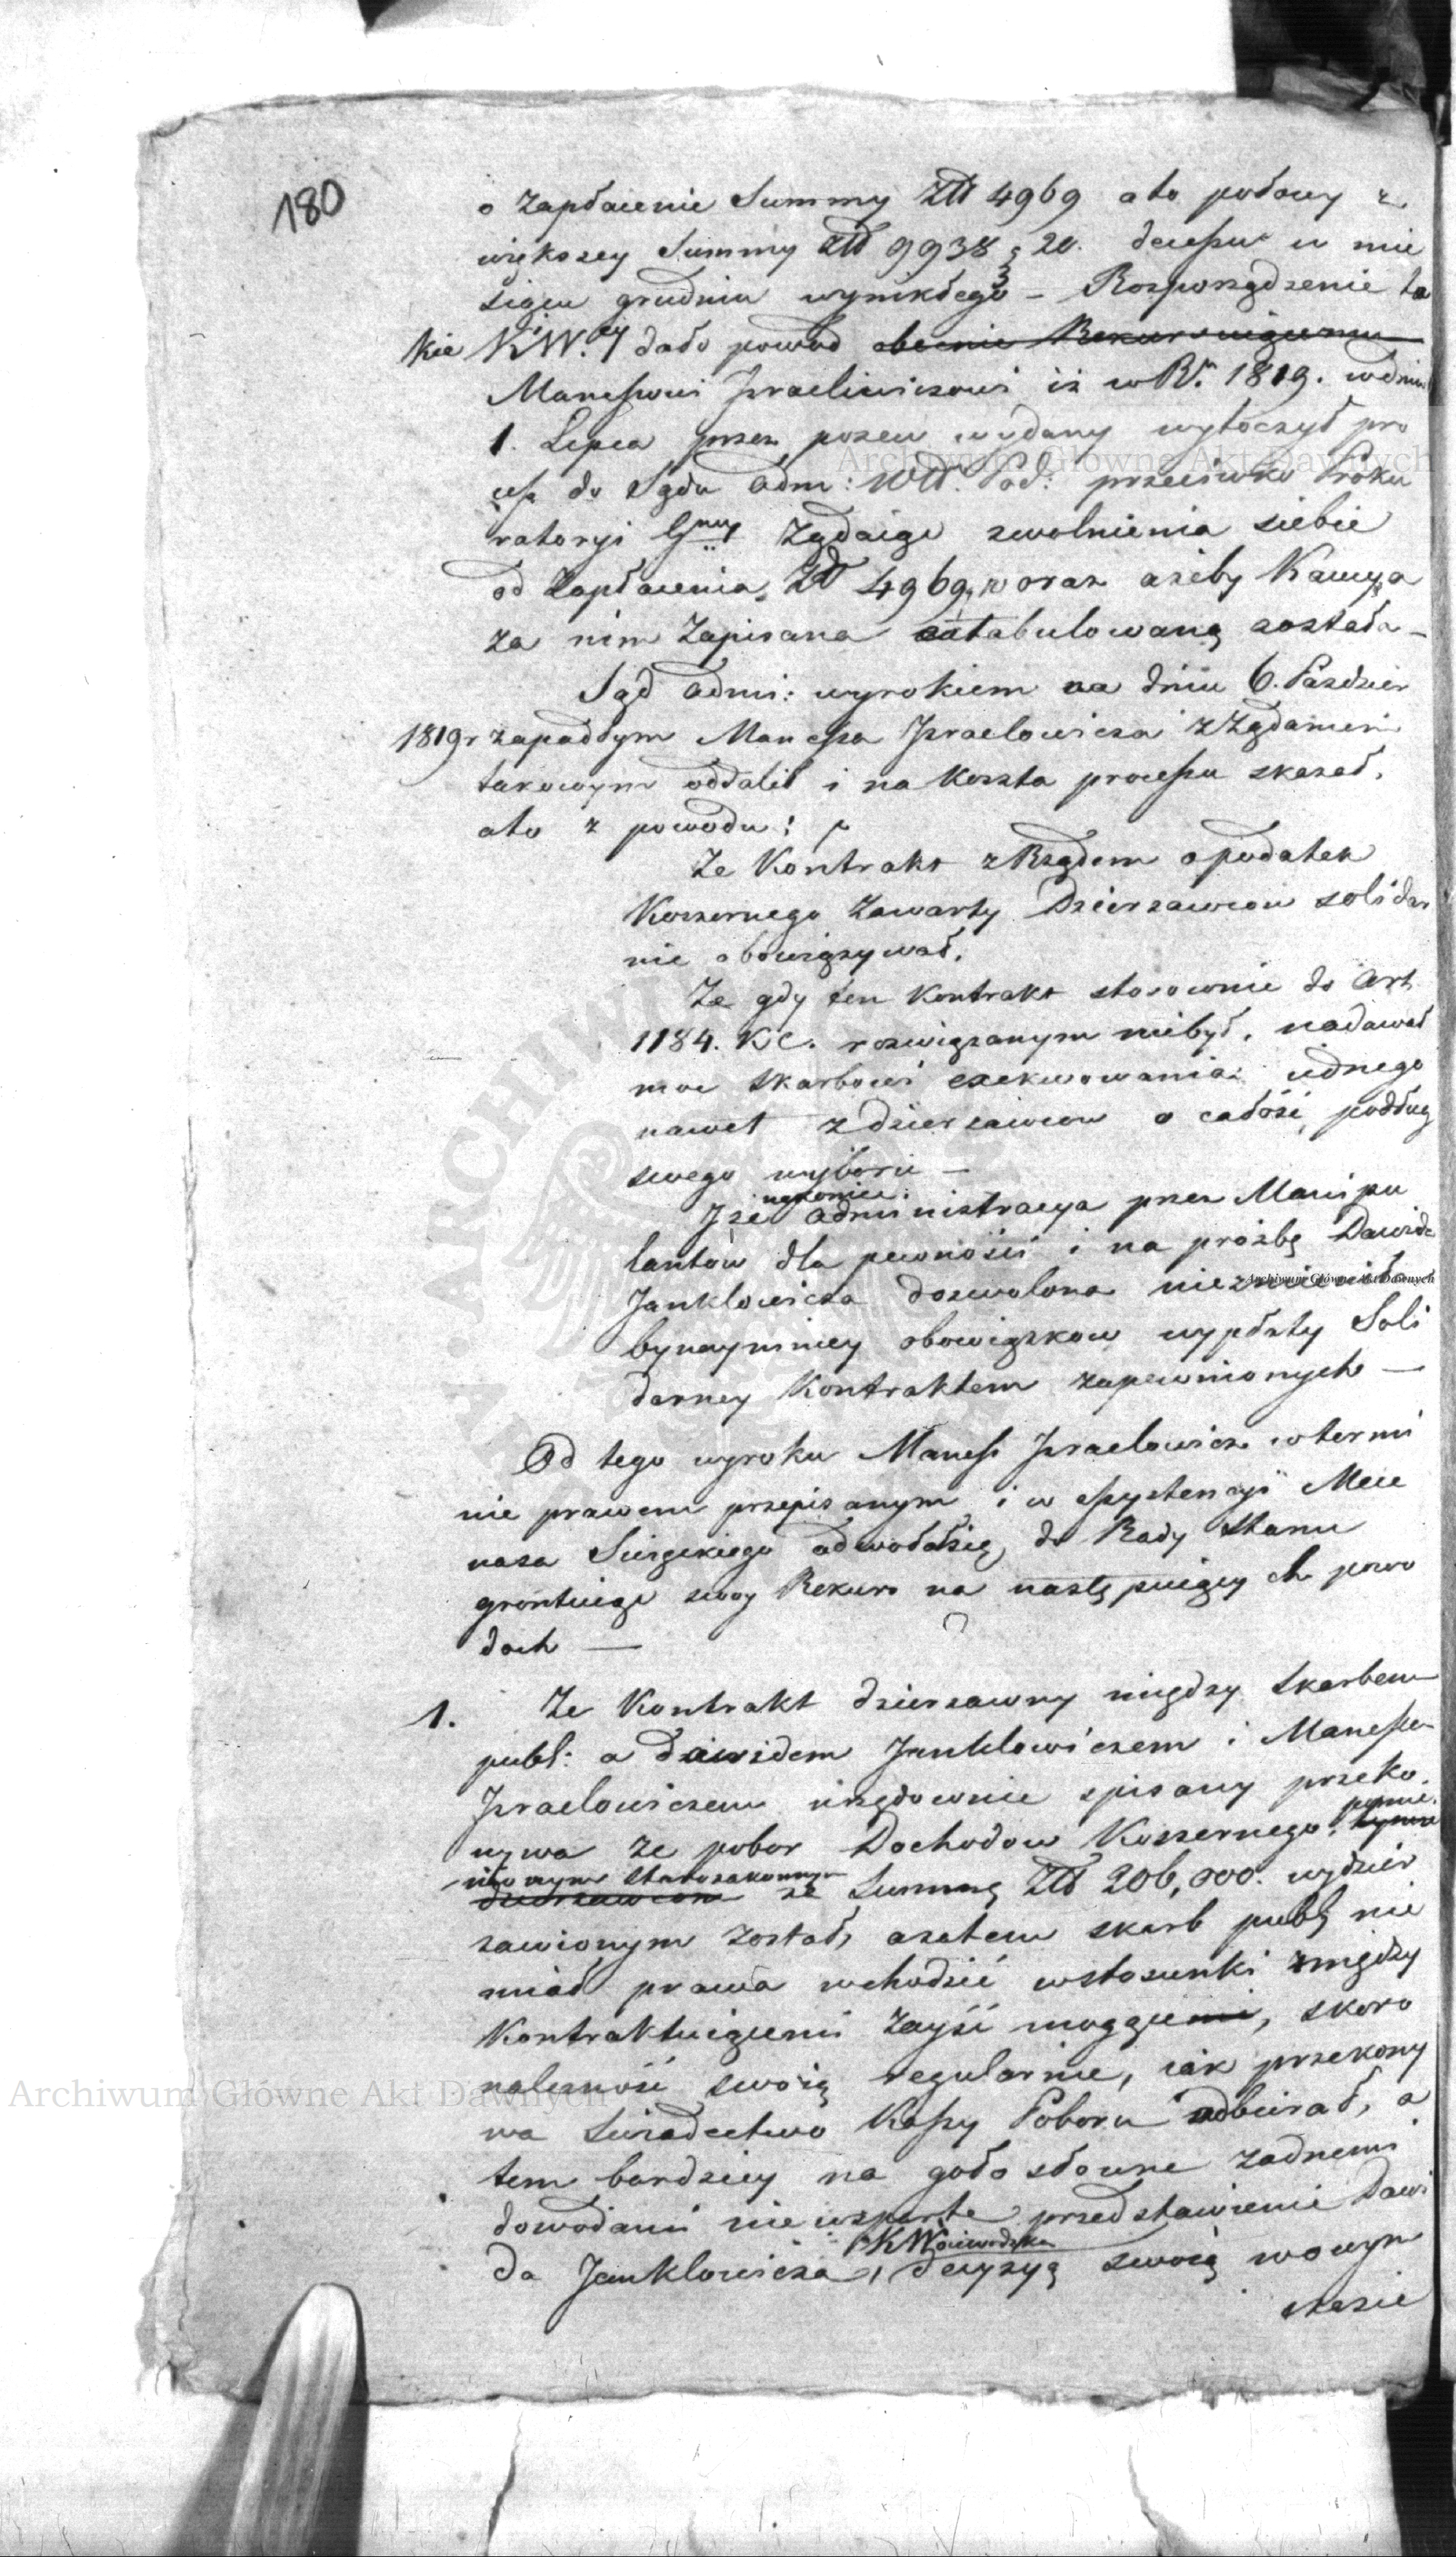 180
o zapłacenie Summy Złł 4969 ato połowy z
większey Summy Złł 9938 g 20. decessu w mie
siącu grudniu wynikłego – Rozporządzenie ta
kie KW.ey dało powod obecnie Rekurruiącemu
Manessowi Izraeliwiczowi iż w R.u 1819. w dniu
1. Lipca przez pozew wydany wytoczył pro
cess do Sądu Adm: Wtt. Pod: przeciwko Proku
ratoryi Gney żądaiąc zwolnienia siebie
od zapłacenia Złł 4969, oraz ażeby Kaucya
za nim zapisana extabulowaną została –
Sąd Admi: wyrokiem na dniu 6. Pazdzier
1819 r zapadłym Manessa Izraelowicza z Żądaniem
takowym oddalił i na koszta processu skazał,
ato z powodu:
Ze Kontrakt z Rządem o podatek
Koszernego zawarty Dzierzawcow solidar
nie obowiązywał,
Ze gdy ten Kontrakt stosownie do Art
1184. KC. rozwiązanym niebył, nadawał
moc Skarbowi exekwowania iednego
nawet z dzierzawcow o całość, podług
swego wyboru –
nakoniec
Iże Administracya przez Manipu
lantów dla pewności i na prożbę Dawida
Janklowicza dozwolona nie zmieniła
bynaymniey obowiązkow wypłaty Soli
darney Kontraktem zapewnionych —
Od tego wyroku Maness Izraelowicz w termi
nie prawem przepisanym i w assystencyi Mece
nasa odwołał się do Rady Stanu
gruntuiąc swoy Rekurs na następuiących powo
dach —
1. Ze Kontrakt dzierzawny między Skarbem
publ: a Dawidem Janklowiczem i Manessem
Izraelowiczem urzędownie spisany przeko
nywa ze pobor Dochodow Koszernego pomie
nionym Starozakonnym
dzierzawcom za Summę Złł 206,000. wydzier
zawionym został, azatem skarb publ nie
miał prawa wchodzić w stosunki między
Kontraktuiącemi zayść mogące, skoro
należność swoią regularnie, iak przekony
wa Swiadectwo Kassy Poboru odbierał, a
tem bardziey na gołosłowne żadnemi
dowodami nie wsparte przedstawienie Dawi
K Woiewodzka
da Janklowicza, decyzyą swoią w owym
czasie
Archiwum Główne Akt Dawnych
Archiwum Główne Akt Dawnych
Archiwum Główne Akt Dawnych